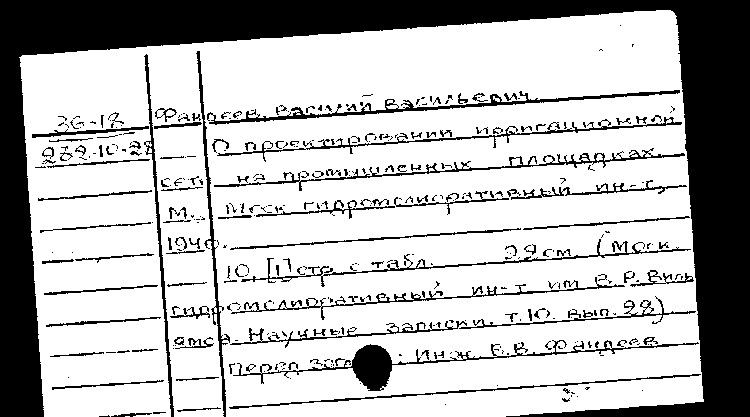 36-18 Фандеев, Василий Васильевич.
282.10-28 О проектировании ирригационной
сети на промышленных площадках.
М. Моск гидромелиоративный ин-т,
1940.
10, [1] стр. с табл. 22 см. (Моск.
гидромелиоративный ин-т им В. Р. Виль
ямса. Научные записки. т. 10. вып. 28)
Перед загл : Инж. В.В. Фандеев